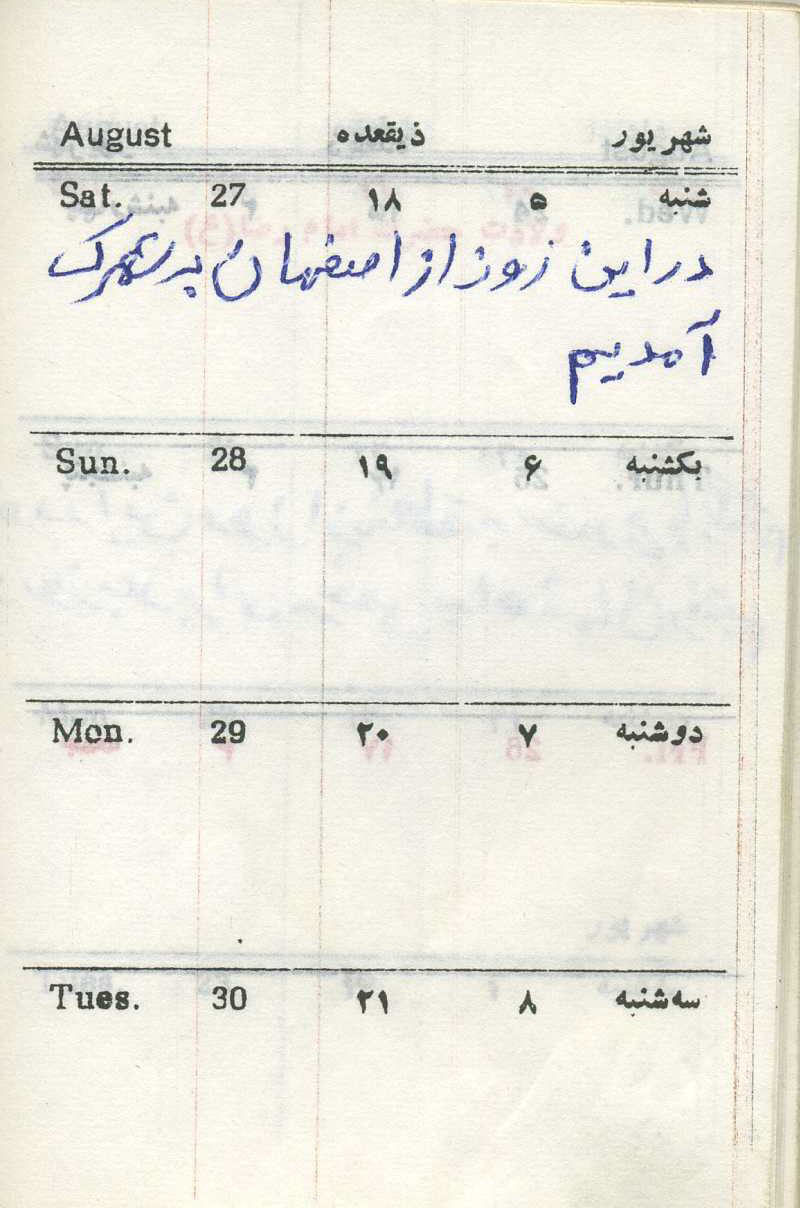 شهریور ذیقعده August
شنبه ۵ ۱۸ 27 Sat.
در این روز از اصفهان به شهرک
آمدیم
یکشنبه ۶ ۱۹ 28 Sun.
دوشنبه ۷ ۲۰ 29 Mon.
سه‌شنبه ۸ ۲۱ 30 Tues.